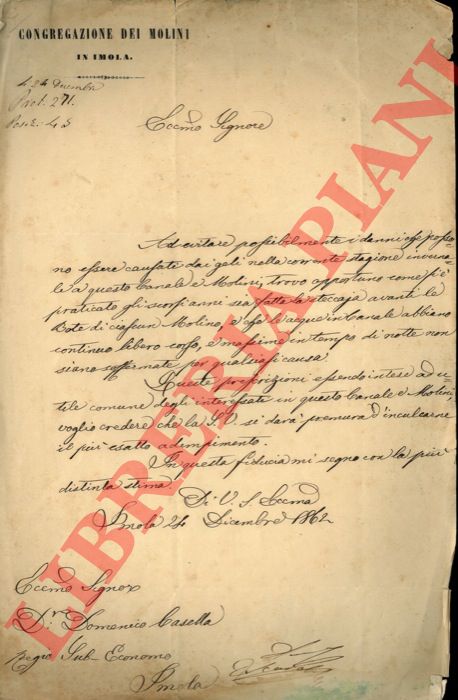 CONGREGAZIONE DEI MOLINI
IN IMOLA.
24 Decembre
Prot. 271.
Eccmo Signore
Ad evitare possibilmente i danni che posso-
no essere causate dai geli nella corrente stagione inverna-
le a questo Canale e Molini, trovo opportuno come si è
praticato gli scorsi anni sia fatta la steccaja avanti le
Bote di ciascun Molino, e che le acque in Canale abbiano
continuo libero corso, e massime in tempo di notte non
siano soffermate per qualsiasi causa.
Queste prescrizioni essendo intese ad u-
tile comune degli interessate in questo Canale e Molini,
voglio credere che la S.V. si darà premura d'inculcarne
il più esatto adempimento.
In questa fiducia mi segno con la più
distinta stima.
Di V. S. Eccma
Imola 24 Dicembre 1862
Eccmo Signor
Dr. Domenico Casella
Regio Sub-Economo
Imola
LIBRERIA PIANI